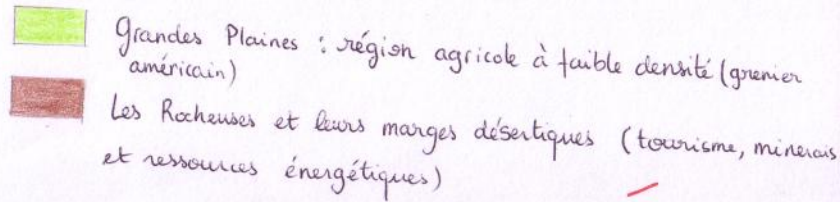 Grandes Plaines : région agricole à faible densité (grenier
américain)
Les Rocheuses et leurs marges désertiques (tourisme, minerais
et ressources énergétiques)